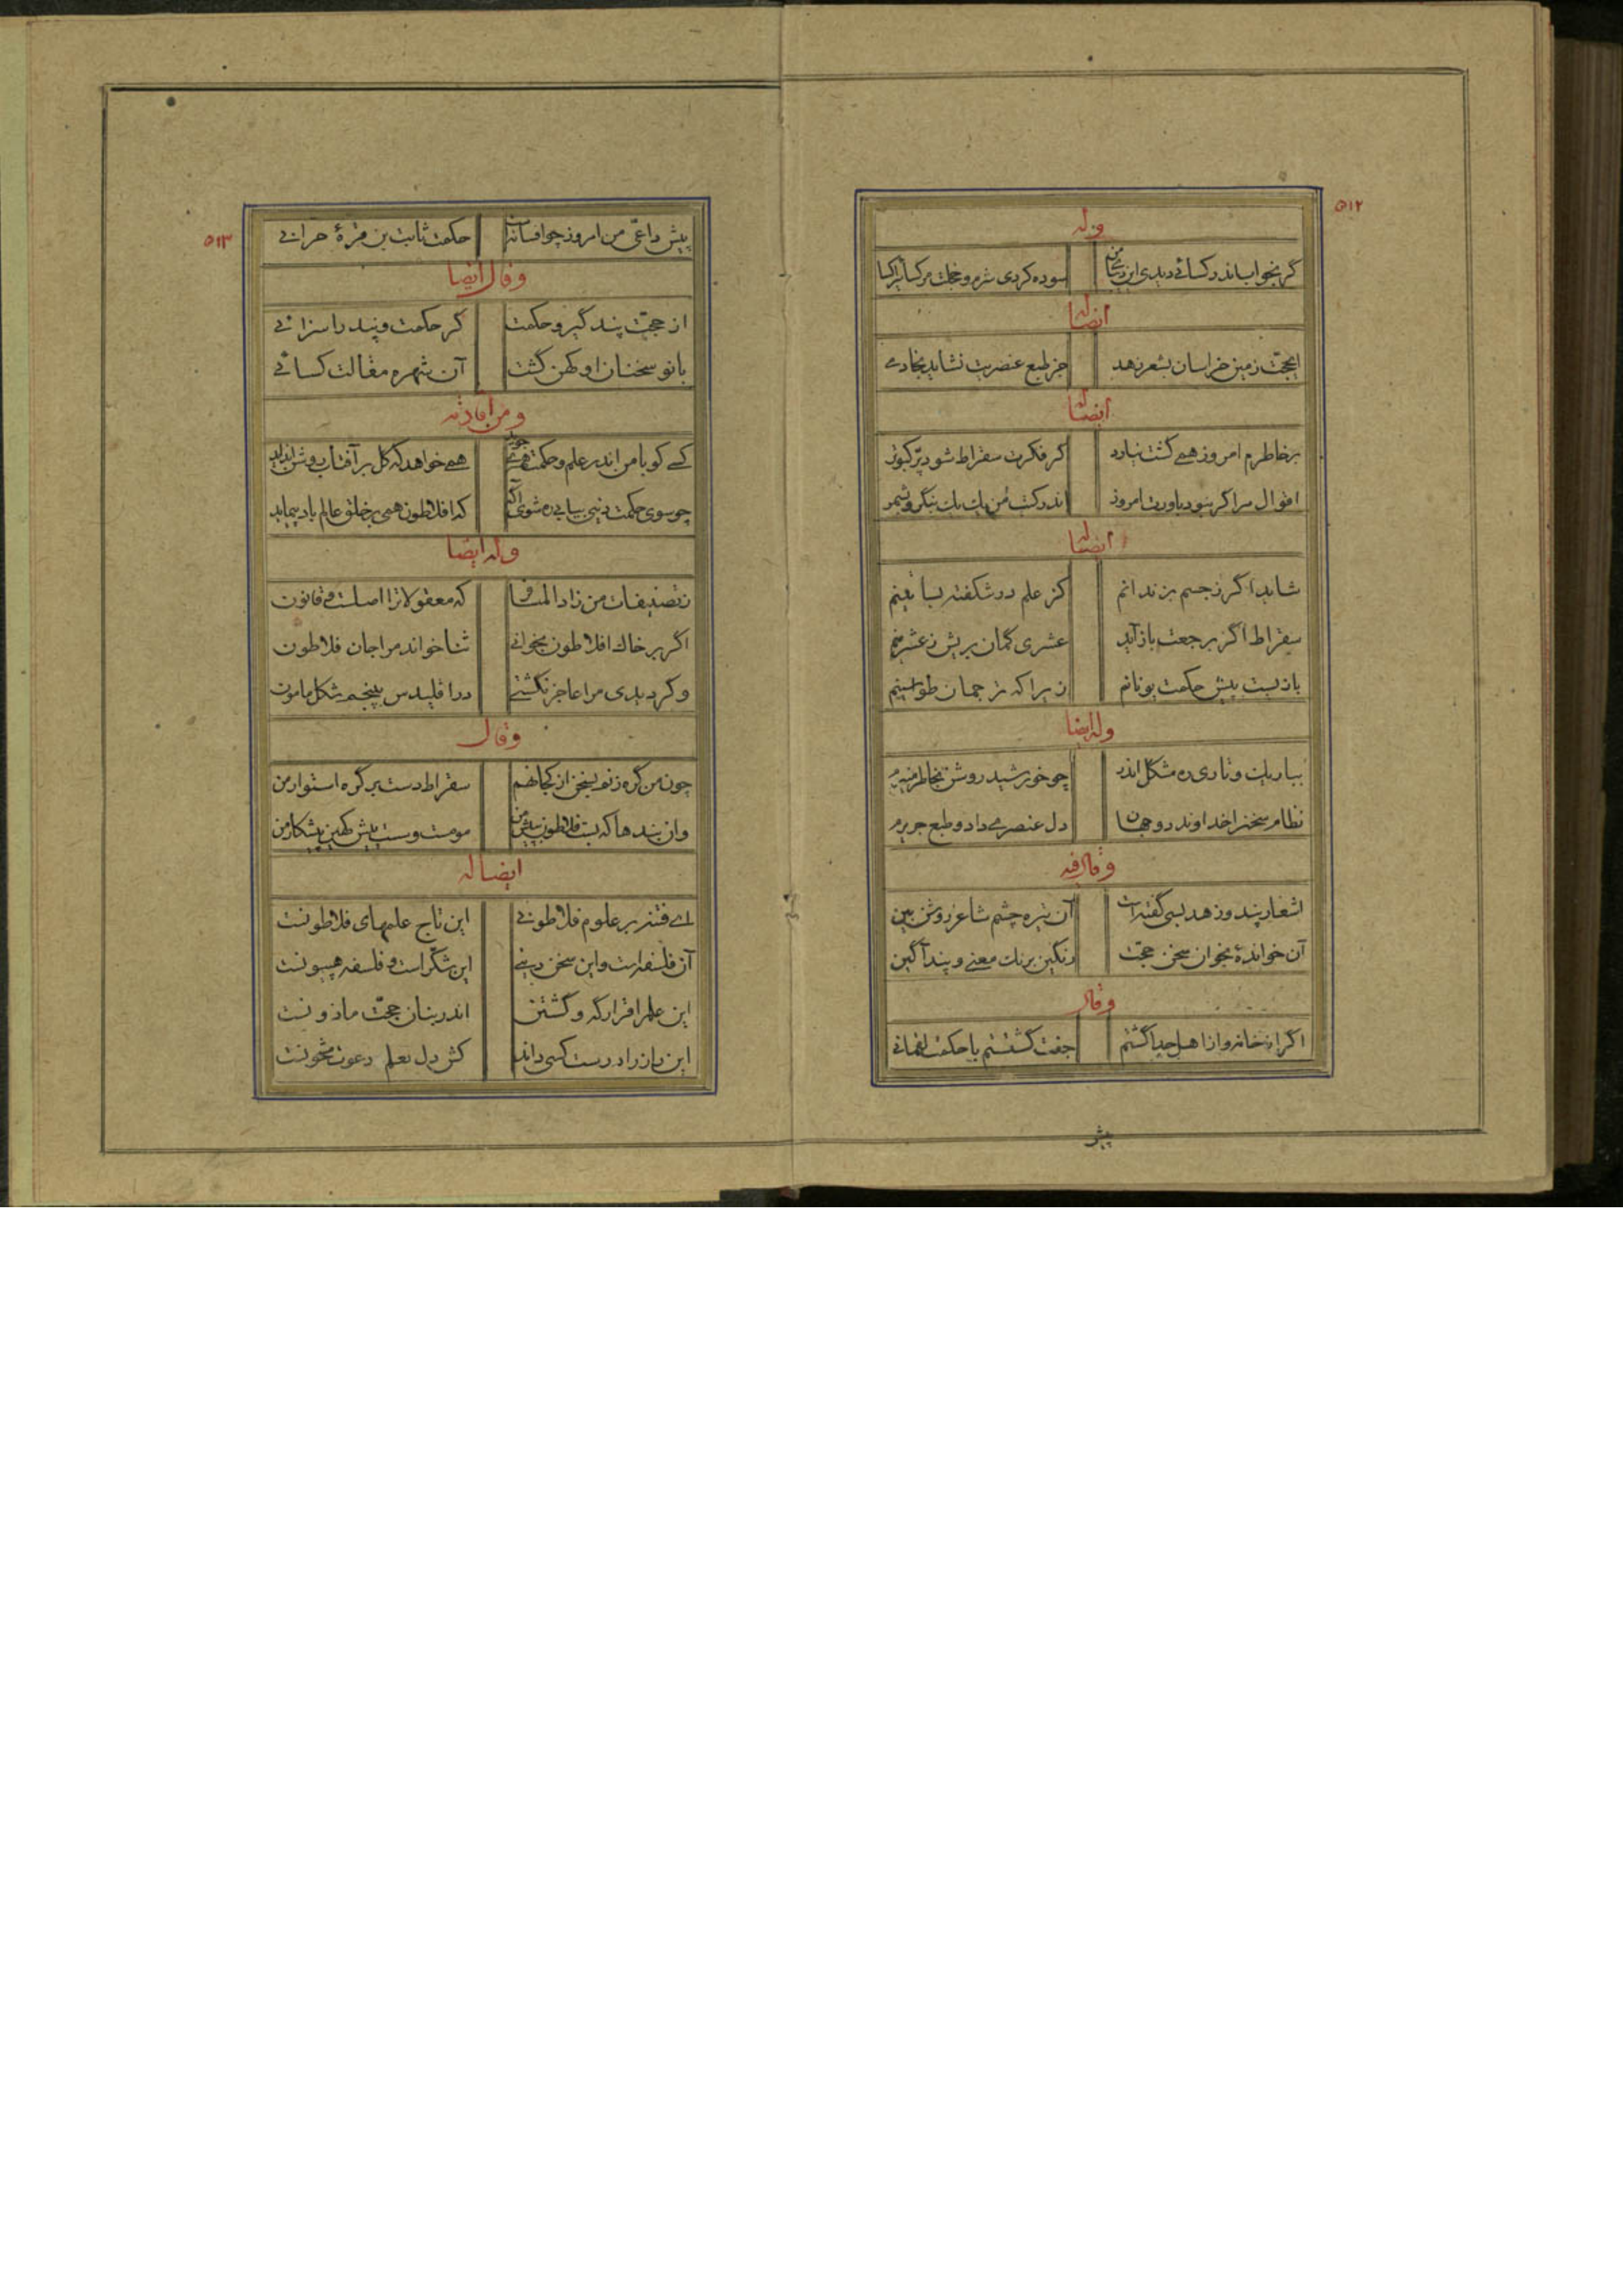 ۵۱۲
وله
گر بخواب اندر کسائی دیدی این دیبای من سوده کردی شرم و خجلت مر کسائیرا کسا
ایضا له
ای حجت زمین خراسان بشعر زهد جز طبع عنصریت نشاید بخادمی
ایضا له
بر خاطرم امروز همی گشت نیارد گر فکرت سقراط شود پر کبوتر
اقوال مرا گر نبود باورت امروز اندر کتب من یک یک بنگر و بشمر
ایضا له
شاید اگر ز جسم بزندانم کز علم در شکفته بساتینم
سقراط اگر برجعت باز آید عشری گمان بریش ز عشرینم
بازیست پیش حکمت یونانم زیرا که ترجمان طواسینم
وله ایضا
بباریک و تاری ره مشکل اندر چو خورشید روشن بخاطر منیرم
نظام سخنرا خداوند دو جهان دل عنصری داد و طبع جریرم
وقال فیه
اشعار پند و زهد بسی گفته است آن تیره چشم شاعر روشن بین
آن خوانده‌ٔ بخوان سخن حجت رنگین برنگ معنی و پند آگین
وقال
اگر از خانه و از اهل جدا گشتم جفت گشتستم با حکمت لقمانی
پیش
۵۱۳
پیش داعی من امروز چو افسانه است حکمت ثابت بن قرهٔ حرانی
وقال ایضا
از حجت پند گیر و حکمت گر حکمت و پند را سزائی
با نو سخنان او کهن گشت آن شهره مقالت کسائی
ومن افاداته
کسی کو با من اندر علم و حکمت همسری جوید همی خواهد که گل بر آفتاب روشن انداید
چو سوی حکمت دینی بیابی ره شوی آگه که افلاطون همی بر خلق عالم باد پیماید
وله ایضا
ز تصنیفات من زاد المسافر که معقولاترا اصلست و قانون
اگر بر خاک افلاطون بخوانی ثنا خواند مرا جان فلاطون
وگر دیدی مرا عاجز نگشتی در اقلیدس پنجم شکل مامون
وقال
چون من گره زنم بسخن از کجا نهم سقراط دست بر گره استوار من
وان بندها که بست فلاطون پیش من مومست و سست پیش کهین پیشکار من
ایضا له
ای فتنه بر علوم فلاطونی این تاج علمهای فلاطونست
آن فلسفه است و این سخن دینی این شکر است و فلسفه هپیونست
این علمرا قرارگه و گشتن اندر بنان حجت ماذونست
این راز راه درست کسی داند کش دل بعلم دعوت مشحونست